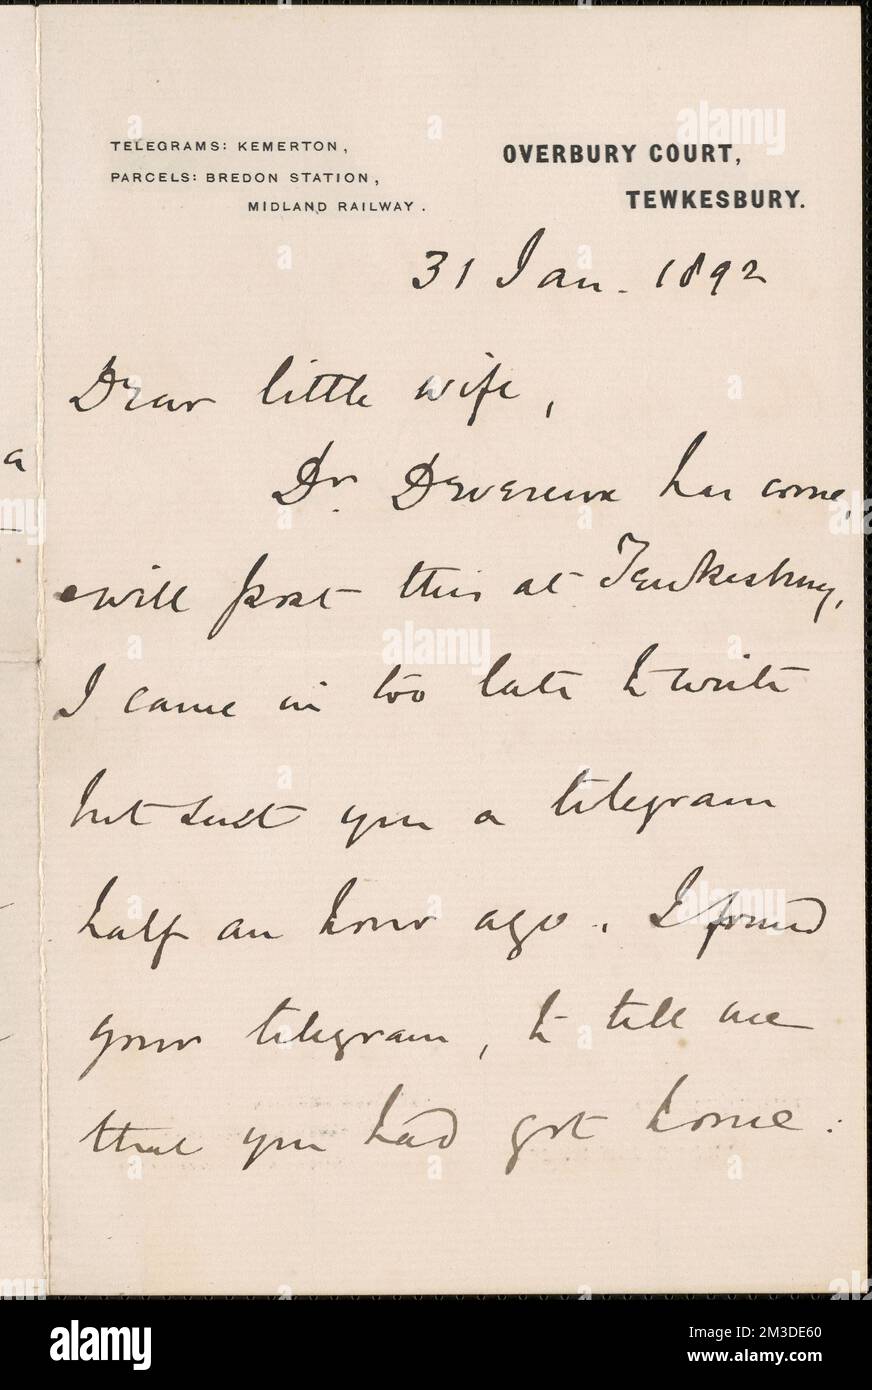 TELEGRAMS: KEMERTON,
PARCELS: BREDON STATION,
MIDLAND RAILWAY.
OVERBURY COURT,
TEWKESBURY.
31 Jan. 1892
Dear little wife,
Dr. Devereux has come,
will post this at Tewkesbury,
I came in too late to write
but sent you a telegram
half an hour ago. I found
your telegram, to tell me
that you had got home:
a
alamy
Image ID: 2M3DE60
www.alamy.com